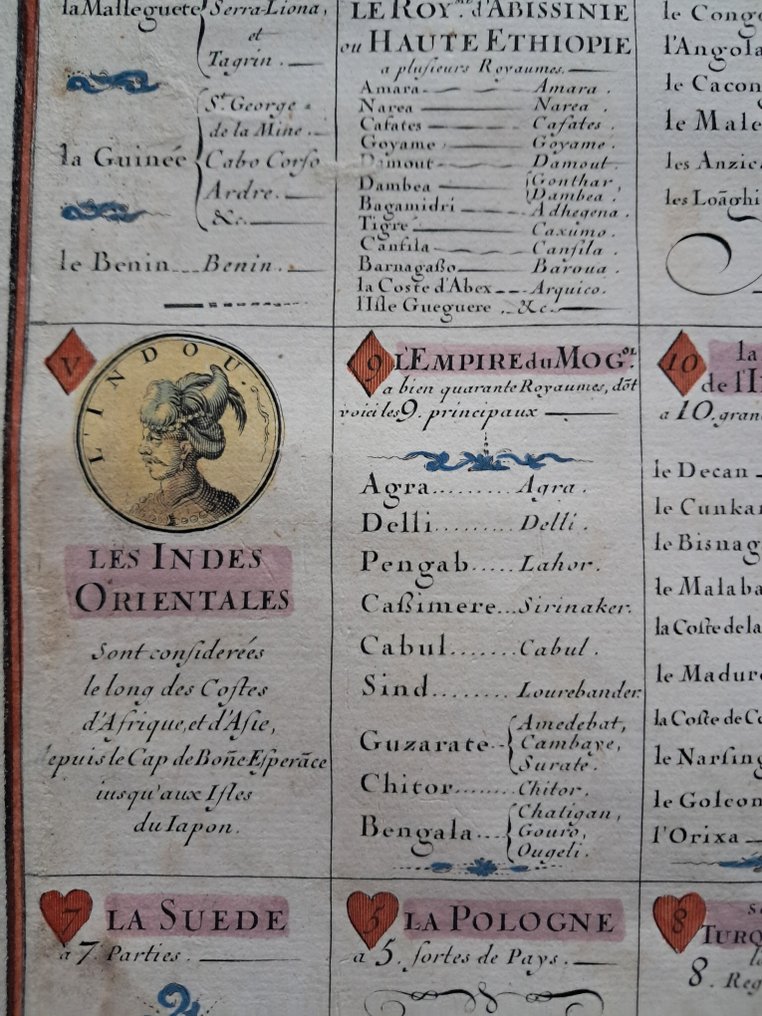 la Malleguete Serra-Liona,
et
Tagrin.
St. George
de la Mine.
la Guinée Cabo Corso
Ardre.
&c.
le Benin Benin.
LE ROY.me d'ABISSINIE
ou HAUTE ETHIOPIE
a plusieurs Royaumes.
Amara Amara.
Narea Narea.
Cafates Cafates.
Goyame Goyame.
Damout Damout.
Dambea Gonthar, Dambea.
Bagamidri Adhegena.
Tigre Caxumo.
Canfila Canfila.
Barnagaßo Baroua.
la Coste d'Abex Arquico.
l'Isle Gueguere &c.
le Congo
l'Angola
le Cacon
le Male
les Anzic
les Loãghi
V
L'INDOU.
LES INDES
ORIENTALES
Sont considerées
le long des Costes
d'Afrique, et d'Asie,
epuis le Cap de Boñe Esperãce
iusqu'aux Isles
du Iapon.
9 L'EMPIRE du MOGol.
a bien quarante Royaumes, dõt
voici les 9. principaux
Agra......... Agra.
Delli......... Delli.
Pengab..... Lahor.
Caßimere... Sirinaker.
Cabul....... Cabul.
Sind........ Lourebander.
Guzarate.. Amedebat,
Cambaye,
Surate.
Chitor....... Chitor.
Bengala.... Chatigan,
Gouro,
Ougeli.
10 la
de l'I
a 10. gran
le Decan
le Cunka
le Bisnag
le Malaba
la Coste de la
le Madure
la Coste de Co
le Narsing
le Golcon
l'Orixa
7 LA SUEDE
a 7. Parties.
5 LA POLOGNE
a 5. sortes de Pays.
8
TURQ
8. Reg